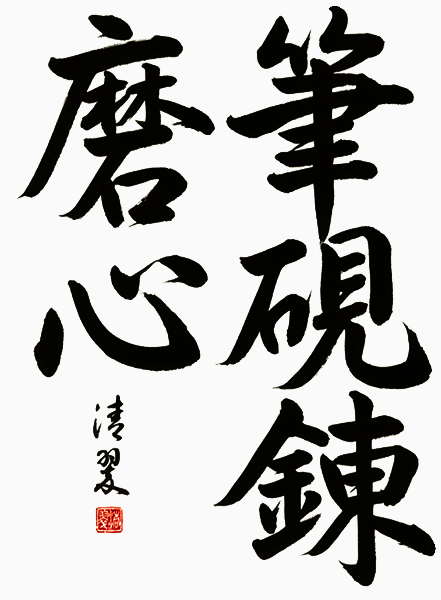 筆硯錬
磨心
清翠